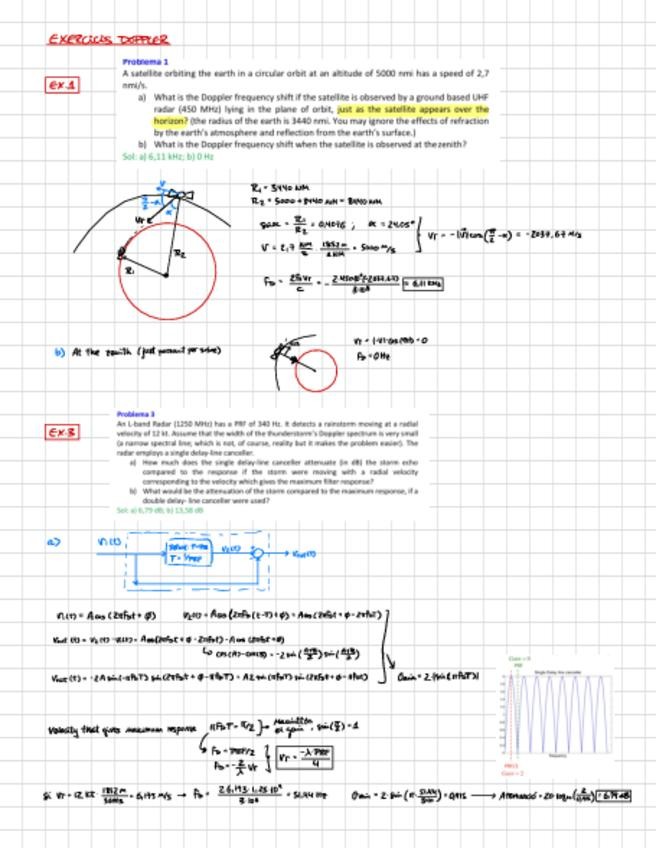 EXERCICIS DOPPLER
Problema 1
EX.1
A satellite orbiting the earth in a circular orbit at an altitude of 5000 nmi has a speed of 2,7
nmi/s.
a) What is the Doppler frequency shift if the satellite is observed by a ground based UHF
radar (450 MHz) lying in the plane of orbit, just as the satellite appears over the
horizon? (the radius of the earth is 3440 nmi. You may ignore the effects of refraction
by the earth's atmosphere and reflection from the earth's surface.)
b) What is the Doppler frequency shift when the satellite is observed at the zenith?
Sol: a) 6,11 kHz; b) 0 Hz
R1 = 3440 NM
R2 = 5000 + 3440 NM = 8440 NM
sin α = R1/R2 = 0,4076 ; α = 24.05°
Vr = -|V| cos(π/2 - α) = -2037,67 m/s
V = 2,7 · 1852 m = 5000 m/s
FD = = 6,11 kHz
R1
R2
Vr
b) At the zenith
Vr = 0
FD = 0Hz
Problema 3
EX.3
An L-band Radar (1250 MHz) has a PRF of 340 Hz. It detects a rainstorm moving at a radial
velocity of 12 kt. Assume that the width of the thunderstorm's Doppler spectrum is very small
(a narrow spectral line, which is not, of course, reality but it makes the problem easier). The
radar employs a single delay-line canceller.
a) How much does the single delay-line canceller attenuate (in dB) the storm echo
compared to the response if the storm were moving with a radial velocity
corresponding to the velocity which gives the maximum filter response?
b) What would be the attenuation of the storm compared to the maximum response, if a
double delay- line canceller were used?
Sol: a) 6,79 dB; b) 13,58 dB
a)
V1(t)
T = 1/PRF
V2(t)
Vout(t)
V1(t) = A cos (2πFDt + φ) V2(t) = A cos (2πFD (t-T) + φ) = A cos (2πFDt + φ - 2πFDT)
Vout (t) = V2 (t) - V1(t) = A cos(2πFDt + φ - 2πFDT) - A cos (2πFDt + φ)
cos(A) - cos(B) = -2 sin (A+B/2) sin (A-B/2)
Vout(t) = -2A sin(-πFDT) sin (2πFDt + φ - πFDT) = A2 sin (πFDT) sin (2πFDt + φ - πFDT)
Gain = 2 |sin (πFDT)|
Gain = 0
PRF
Single Delay line canceller
frequency
PRF/2
Gain = 2
Velocity that gives maximum response πFDT = π/2 , sin(π/2) = 1
FD = PRF/2
FD = -2/λ Vr
Vr = -λ PRF/4
Si Vr = 12 kt · 1852 m/3600s = 6,173 m/s → FD = = 51,44 Hz